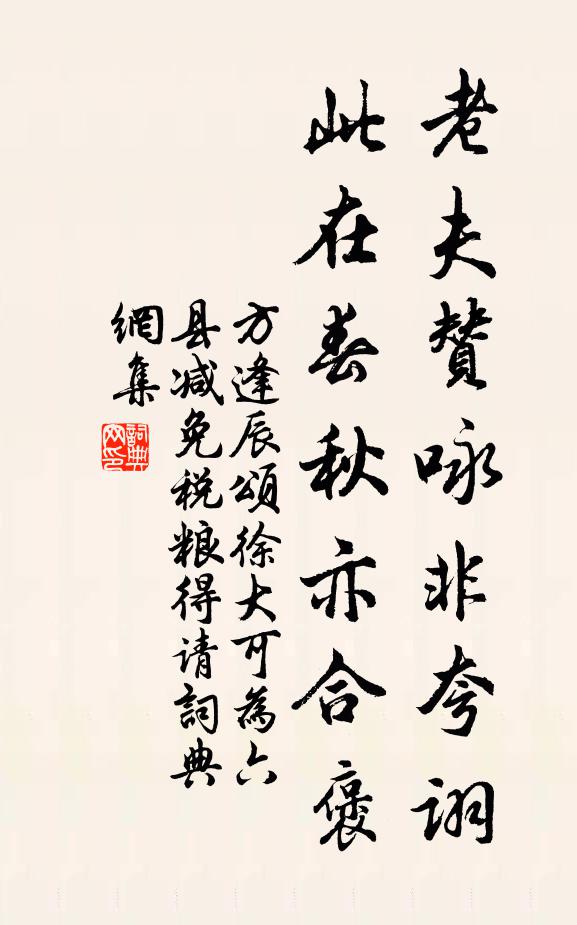 老夫赞咏非夸诩
此在春秋亦合褒
方逢辰颂徐大可為六
县减免税粮得请詞典
網集
詞典
网印